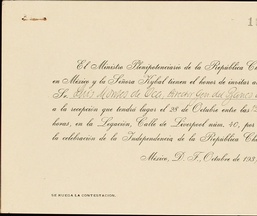 El Ministro Plenipotenciario de la República
en México y la Señora Kybal tienen el honor de invitar a
Sr. Luis Montes de Oca,
a la recepción que tendrá lugar el 28 de Octubre entre las
horas, en la Legación, Calle de Liverpool núm. 40, por
la celebración de la Independencia de la República
México, D. F., Octubre de 193
SE RUEGA LA CONTESTACION.